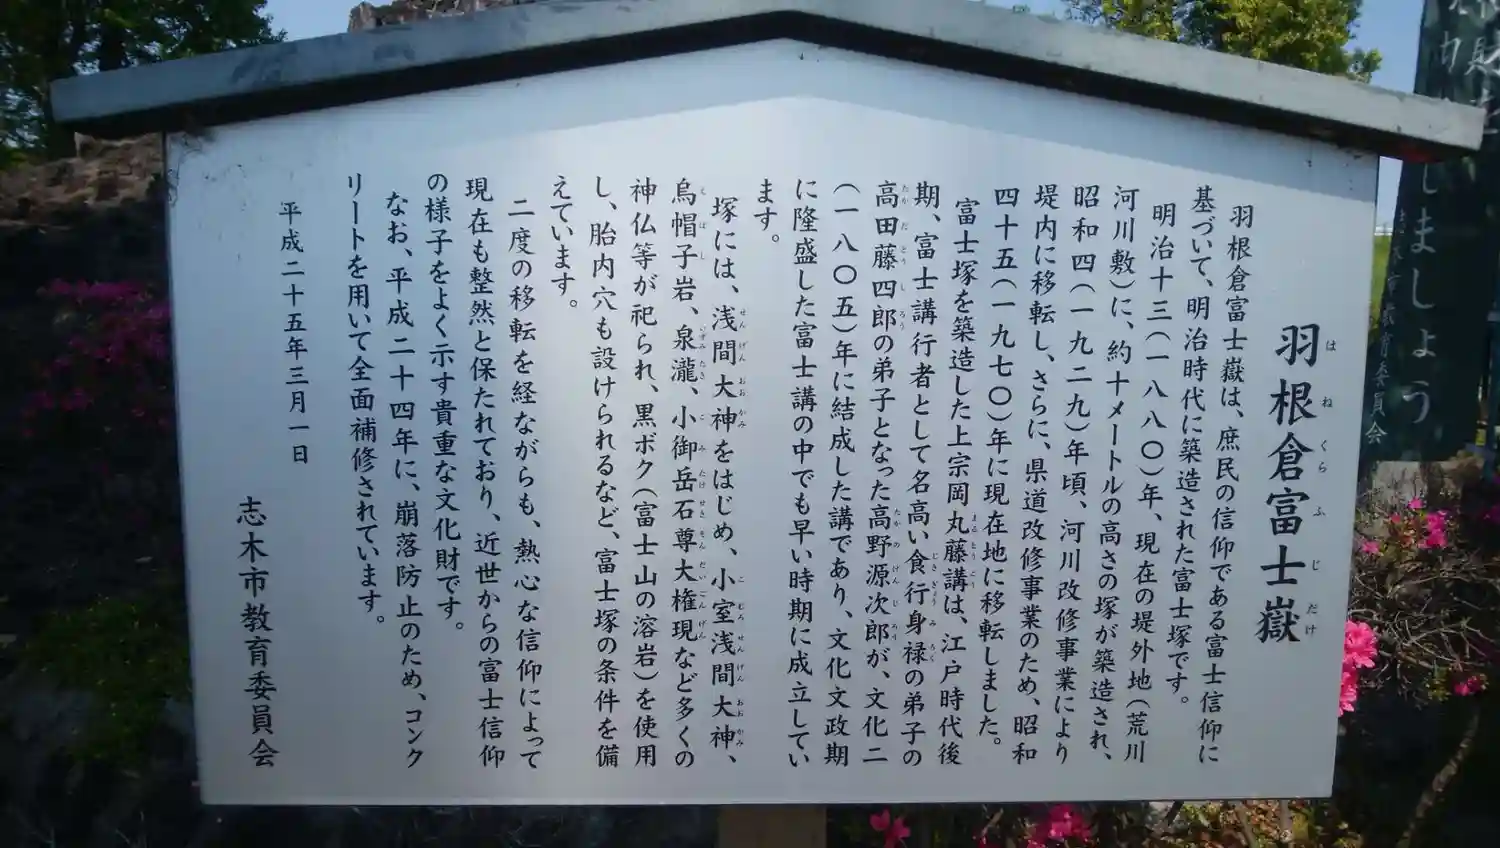 羽根倉富士嶽
はねくらふじだけ
羽根倉富士嶽は、庶民の信仰である富士信仰に
基づいて、明治時代に築造された富士塚です。
明治十三(一八八〇)年、現在の堤外地(荒川
河川敷)に、約十メートルの高さの塚が築造され、
昭和四(一九二九)年頃、河川改修事業により
堤内に移転し、さらに、県道改修事業のため、昭和
四十五(一九七〇)年に現在地に移転しました。
富士塚を築造した上宗岡丸藤講は、江戸時代後
まるとうこう
期、富士講行者として名高い食行身禄の弟子の
じきぎょうみろく
高田藤四郎の弟子となった高野源次郎が、文化二
たかだとうしろう
たかのげんじろう
(一八〇五)年に結成した講であり、文化文政期
に隆盛した富士講の中でも早い時期に成立してい
ます。
塚には、浅間大神をはじめ、小室浅間大神、
せんげんおおかみ
こむろせんげんおおかみ
烏帽子岩、泉瀧、小御岳石尊大権現など多くの
えぼし
いずみたき
こみたけせきそんだいごんげん
神仏等が祀られ、黒ボク(富士山の溶岩)を使用
し、胎内穴も設けられるなど、富士塚の条件を備
えています。
二度の移転を経ながらも、熱心な信仰によって
現在も整然と保たれており、近世からの富士信仰
の様子をよく示す貴重な文化財です。
なお、平成二十四年に、崩落防止のため、コンク
リートを用いて全面補修されています。
平成二十五年三月一日
志木市教育委員会
しましょう
育委員会